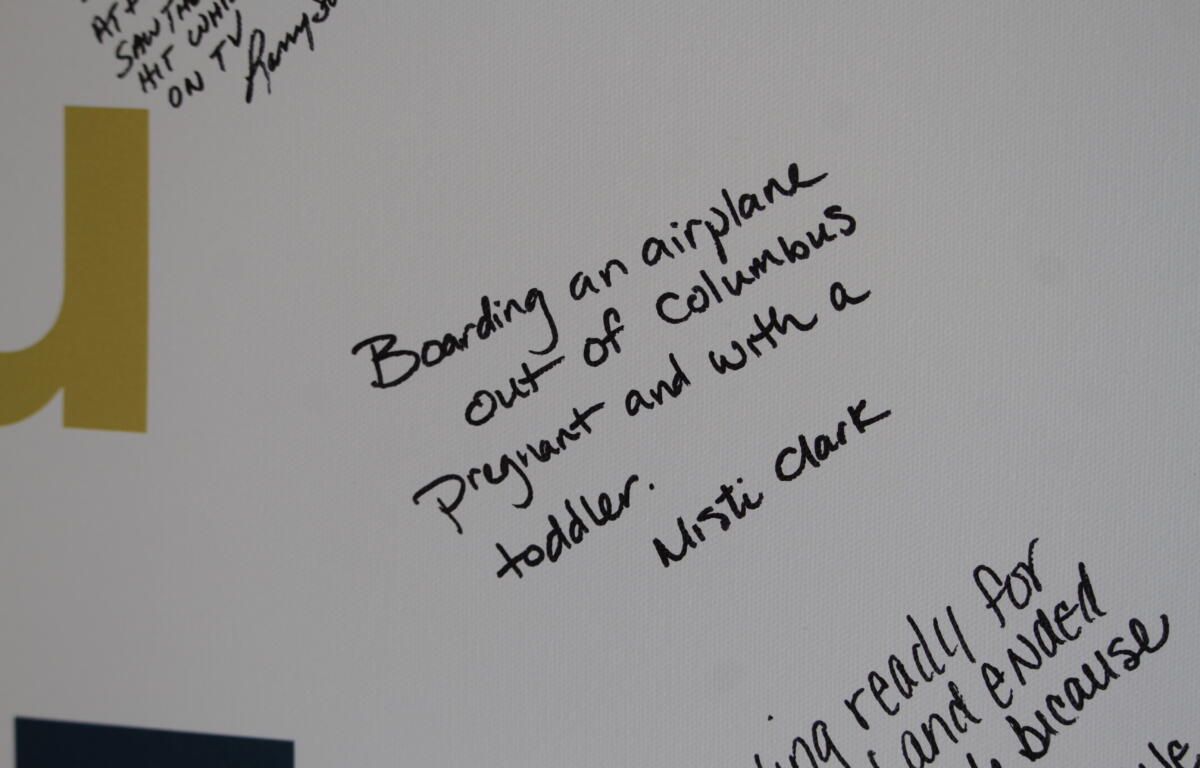 SAW
HIT
ON TV
u
Boarding an airplane
out of Columbus
Pregnant and with a
toddler.
Misti Clark
ready for
and ended
because